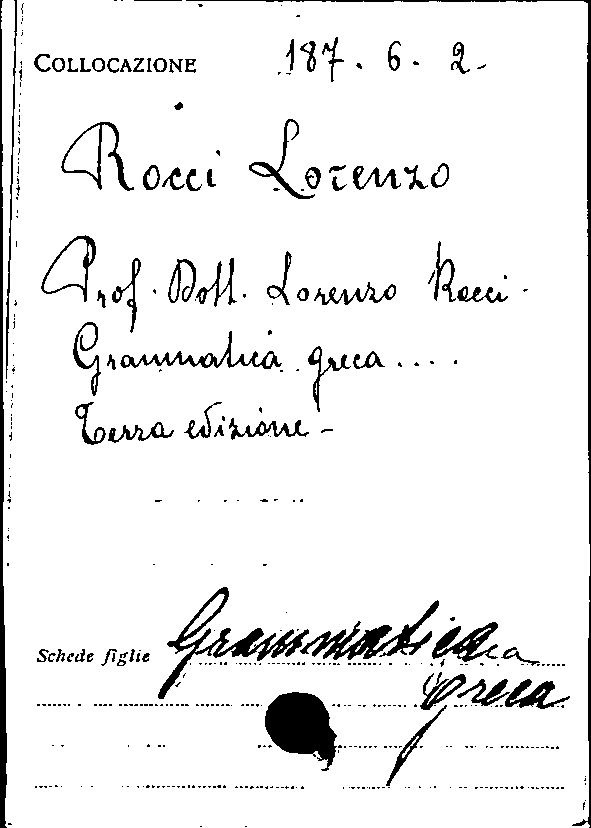 COLLOCAZIONE 187. 6. 2.
Rocci Lorenzo
Prof. Dott. Lorenzo Rocci.
Grammatica greca....
Terza edizione -
Schede figlie Grammatica
Greca